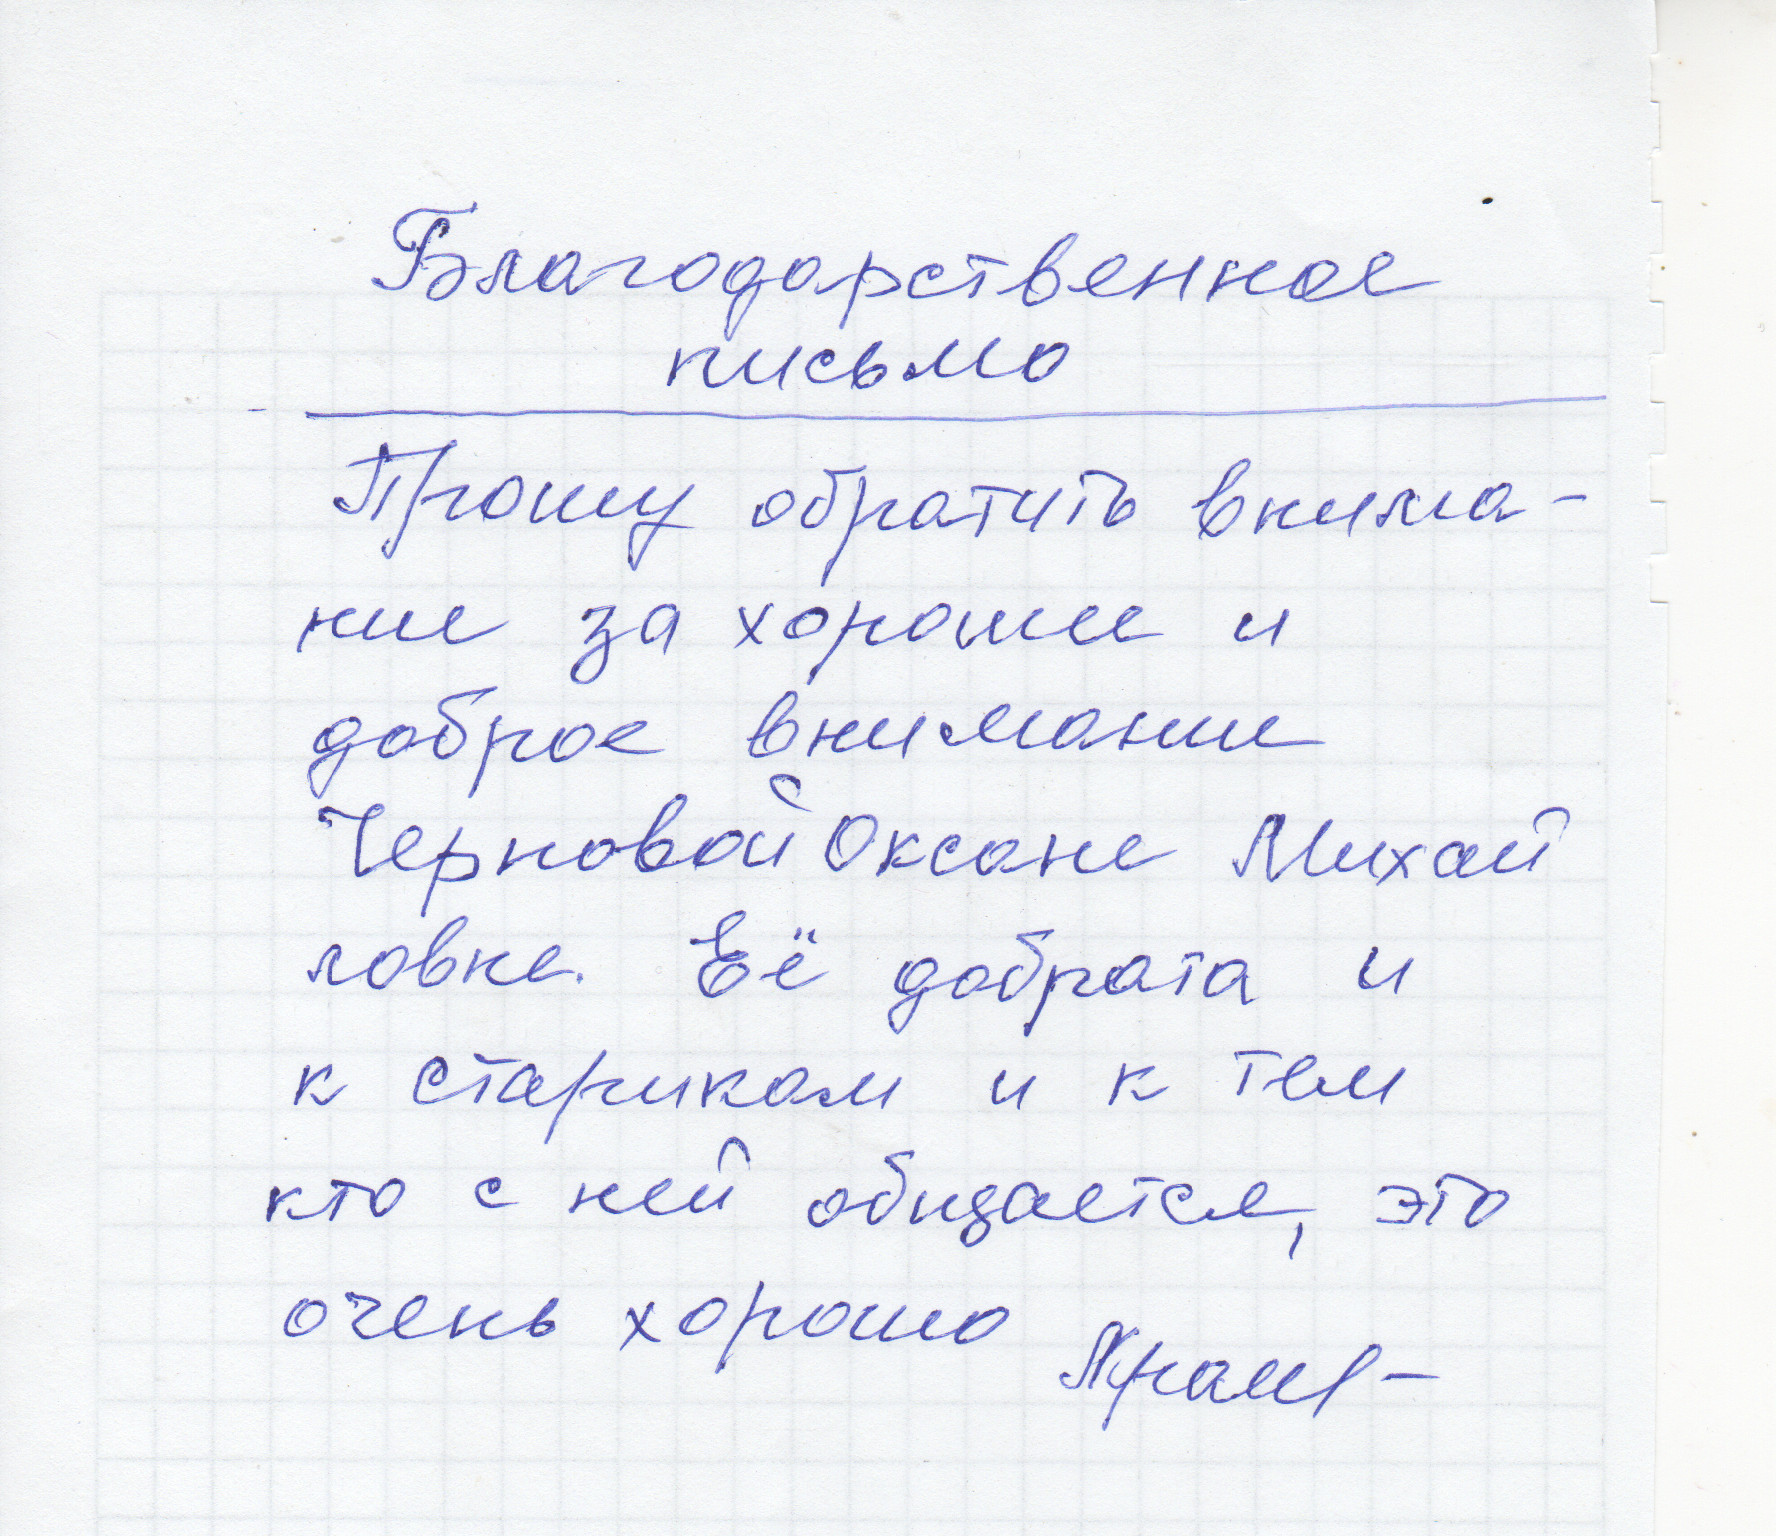 Благодарственное
письмо
Прошу обратить внима-
ние за хорошее и
доброе внимание
Черновой Оксане Михай
ловне. Её доброта и
к старикам и к тем
кто с ней общается, это
очень хорошо